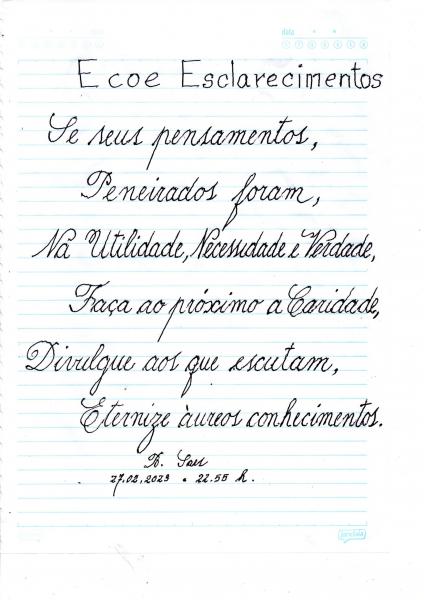 data
Ecoe Esclarecimentos
Se seus pensamentos,
Peneirados foram,
Na Utilidade, Necessidade e Verdade,
Faça ao próximo a Caridade,
Divulgue aos que escutam,
Eternize áureos conhecimentos.
27.02.2023 • 22.55 h.